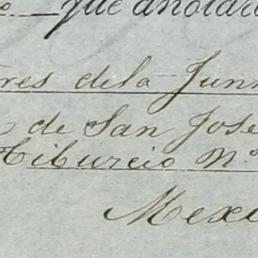 que anotar
res dela Jun
de San Jose
Tiburcio Nº
Mex